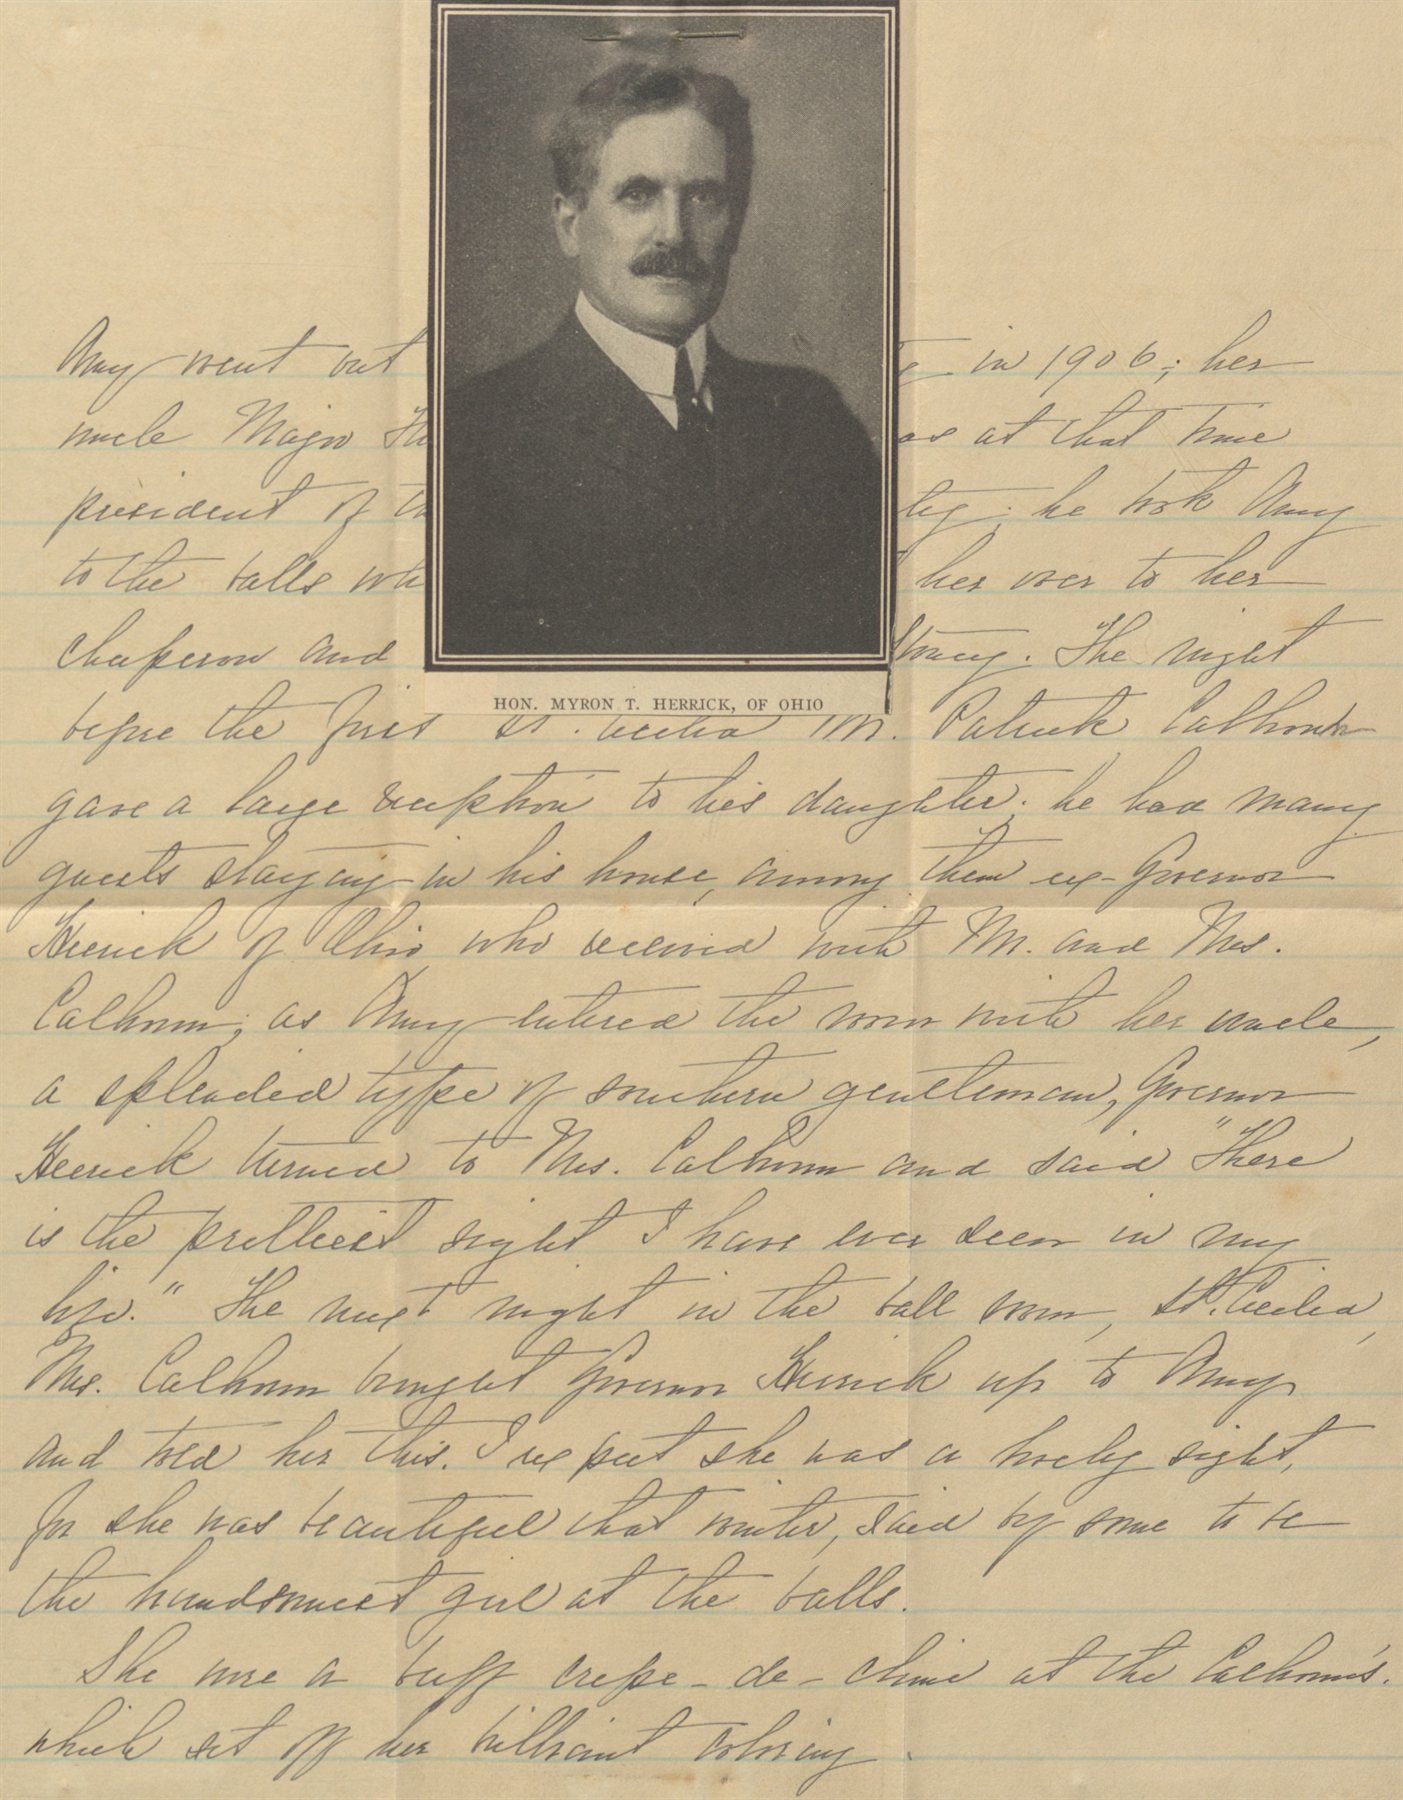 HON. MYRON T. HERRICK, OF OHIO
Amy went out in 1906; her
uncle Major as at that time
president of he took Amy
to the balls her over to her
chaperon and The night
before the first St. Cecilia Mr. Patrick Calhoun
gave a large reception to his daughter; he had many
guests staying in his house, among them ex-Governor
Herrick of Ohio who received with Mr. and Mrs.
Calhoun; as Amy entered the room with her uncle,
a splended type of southern gentleman, Governor
Herrick turned to Mrs. Calhoun and said "There
is the prettiest sight I have ever seen in my
life." The next night in the ball room, St. Cecilia,
Mrs. Calhoun brought Governor Herrick up to Amy
and told her this. I expect she was a lovely sight,
for she was beautiful that winter, said by some to be
the handsomest girl at the balls.
She wore a buff crepe-de-chine at the Calhoun's.
which set off her brilliant coloring.